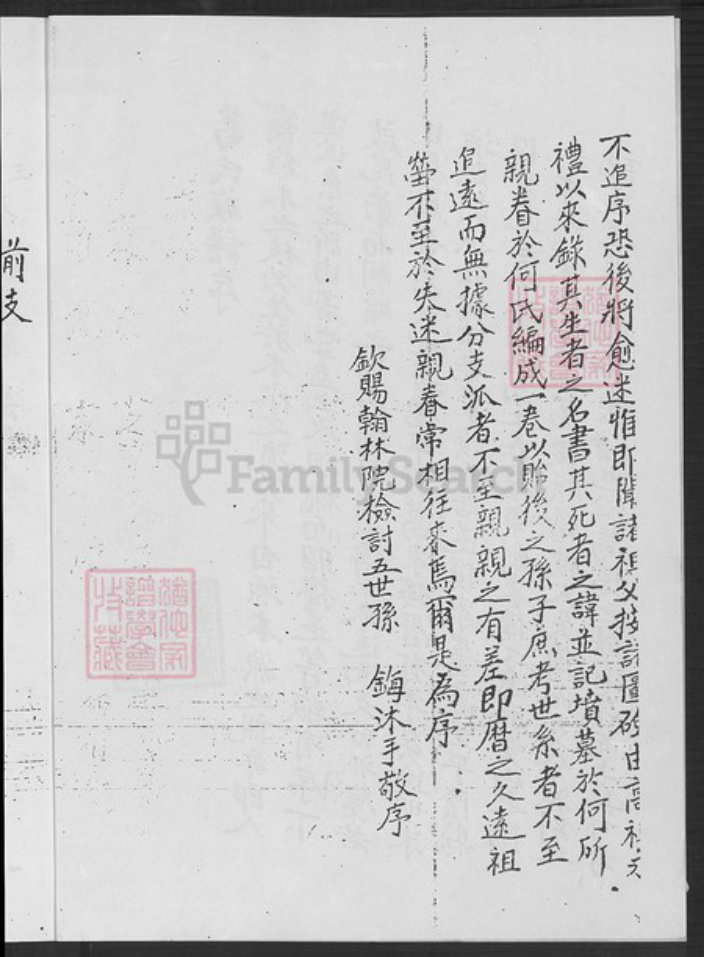 不追序恐後將愈迷惟即聞諸祖父按諸圖改由高祖天
禮以來錄其生者之名書其死者之諱並記墳墓於何所
親眷於何氏編成一卷以貽後之孫子庶考世系者不至
追遠而無據分支派者不至親親之有差即曆之久遠祖
塋不至於失迷親眷常相往來焉爾是為序
欽賜翰林院檢討五世孫 鋂沐手敬序
前支
FamilySearch